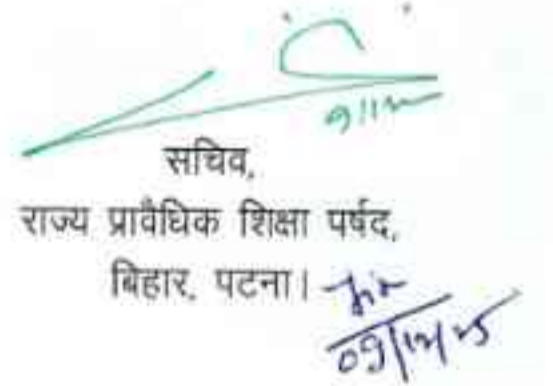 सचिव,
राज्य प्रावैधिक शिक्षा पर्षद,
बिहार, पटना।
09/12/25